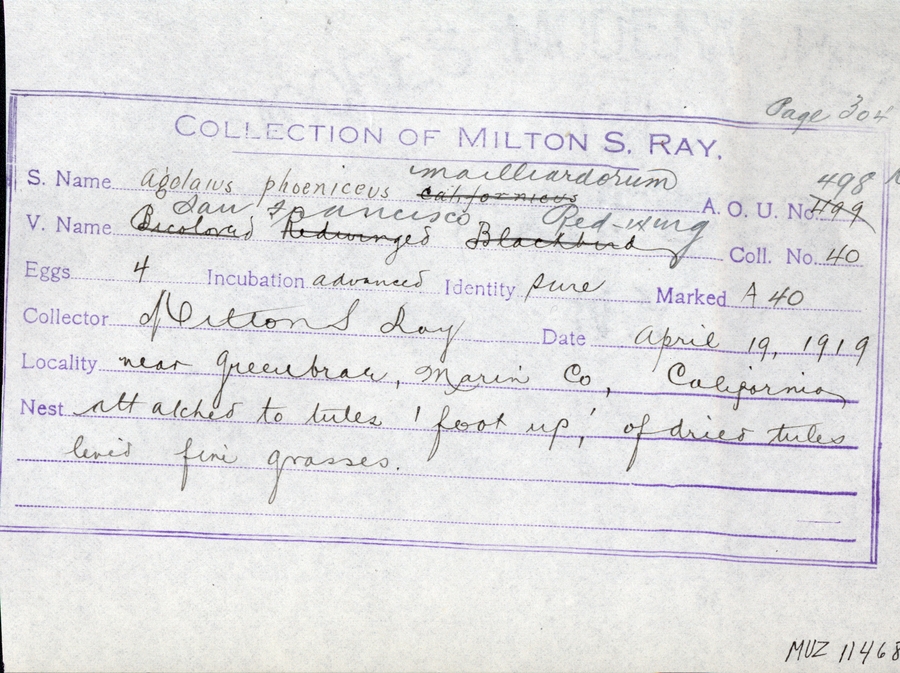 Page 304
COLLECTION OF MILTON S. RAY.
mailliardorum
S. Name agelaius phoeniceus californicus A. O. U. No. 499 498
San Francisco Red-wing
V. Name Bicolored Redwinged Blackbird Coll. No. 40
Eggs 4 Incubation advanced Identity sure Marked A 40
Collector Milton S Ray Date April 19, 1919
Locality near Greenbrau, Marin Co, California
Nest attached to tules 1 foot up, of dried tules
lined fine grasses.
MVZ 11468